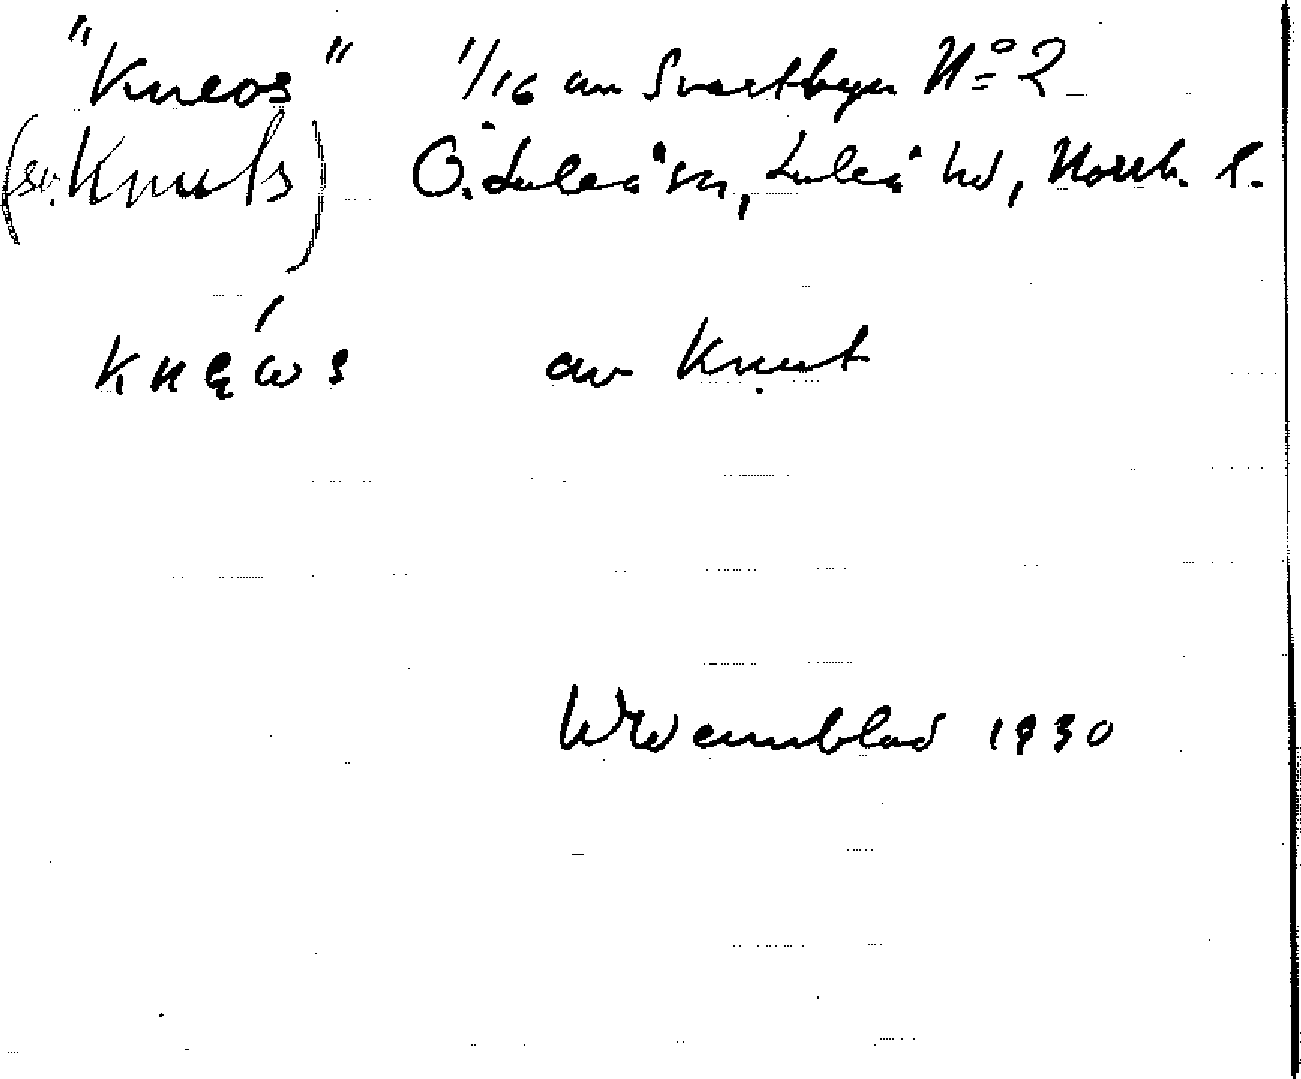 "Kneos" 1/16 av Svartbyn No 2
(sv. Knuts) Ö. Luleå sn, Luleå hd, Norrb. l.
knęω´s av Knut
Wennblad 1930